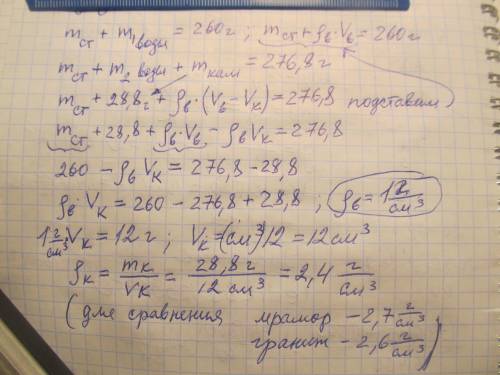 mст + m₁ воды = 260 г ; mст + ρв · Vв = 260 г
mст + m₂ воды + mкам = 276,8 г
mст + 28,8 г + ρв · (Vв – Vк) = 276,8 подставим
mст + 28,8 + ρв · Vв – ρв Vк = 276,8
260 – ρв Vк = 276,8 – 28,8
ρв · Vк = 260 – 276,8 + 28,8 ; ρв = 1 г/см³
1 г/см³ Vк = 12 г ; Vк = (см³) 12 = 12 см³
ρк = mк/Vк = 28,8 г / 12 см³ = 2,4 г/см³
(для сравнения мрамор – 2,7 г/см³
гранит – 2,6 г/см³)